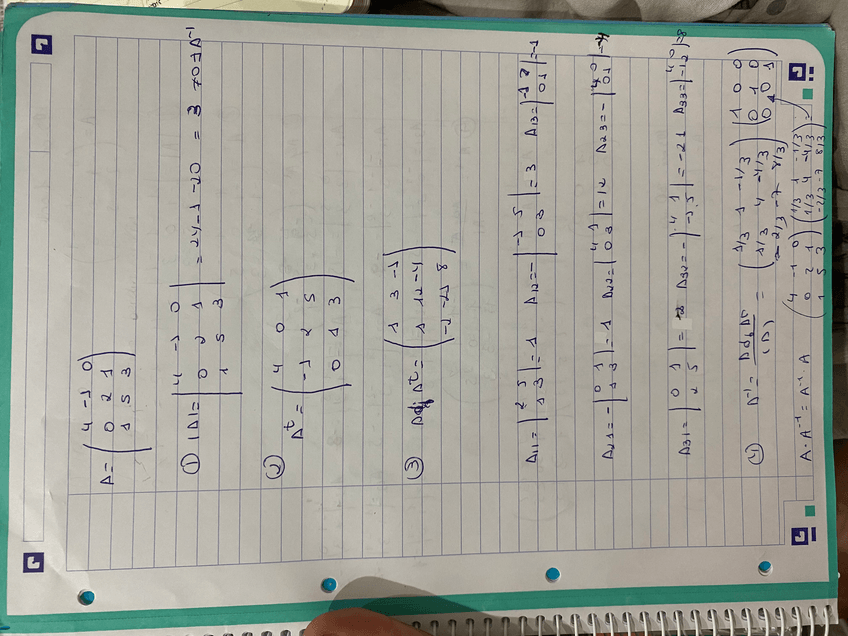 A = ( 4 -1 0
0 2 1
1 5 3 )
① |A| = | 4 -1 0
0 2 1
1 5 3 | = 24 - 1 - 20 = 3 ≠ 0 ∃ A⁻¹
② Aᵗ = ( 4 0 1
-1 2 5
0 1 3 )
③ Adj Aᵗ = ( 1 3 -1
1 12 -4
-2 -21 8 )
A₁₁ = | 2 5
1 3 | = 1 A₁₂ = - | -1 5
0 3 | = 3 A₁₃ = | -1 2
0 1 | = -1
A₂₁ = - | 0 1
1 3 | = 1 A₂₂ = | 4 1
0 3 | = 12 A₂₃ = - | 4 0
0 1 | = -4
A₃₁ = | 0 1
2 5 | = -2 A₃₂ = - | 4 1
-1 5 | = -21 A₃₃ = | 4 0
-1 2 | = 8
④ A⁻¹ = Adj Aᵗ / |A| = ( 1/3 1 -1/3
1/3 4 -4/3
-2/3 -7 8/3 )
A · A⁻¹ = A⁻¹ · A ( 4 -1 0
0 2 1
1 5 3 ) ( 1/3 1 -1/3
1/3 4 -4/3
-2/3 -7 8/3 ) =
( 1 0 0
0 1 0
0 0 1 )